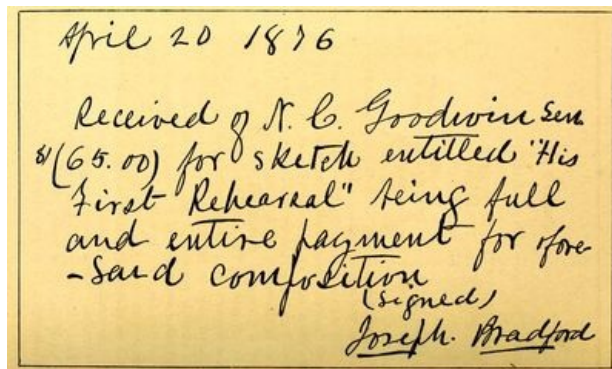 April 20 1876
Received of N. C. Goodwin Sen
$(65.00) for sketch entitled "His
First Rehearsal" being full
and entire payment for afore
-said composition
(signed)
Joseph. Bradford